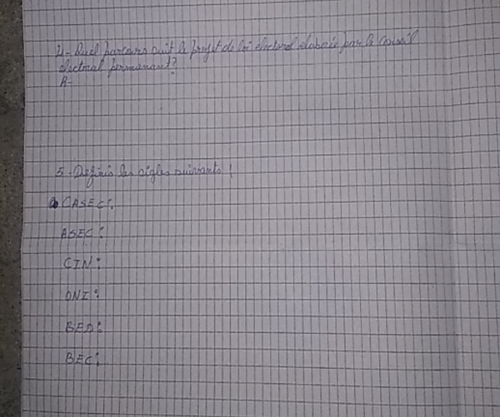 4- Quel parcours suit le projet de loi electoral elaboré par le Conseil
electoral permanant?
R-
5- Définis les sigles suivants :
CASEC:
ASEC:
CIN:
ONI:
BED:
BEC: